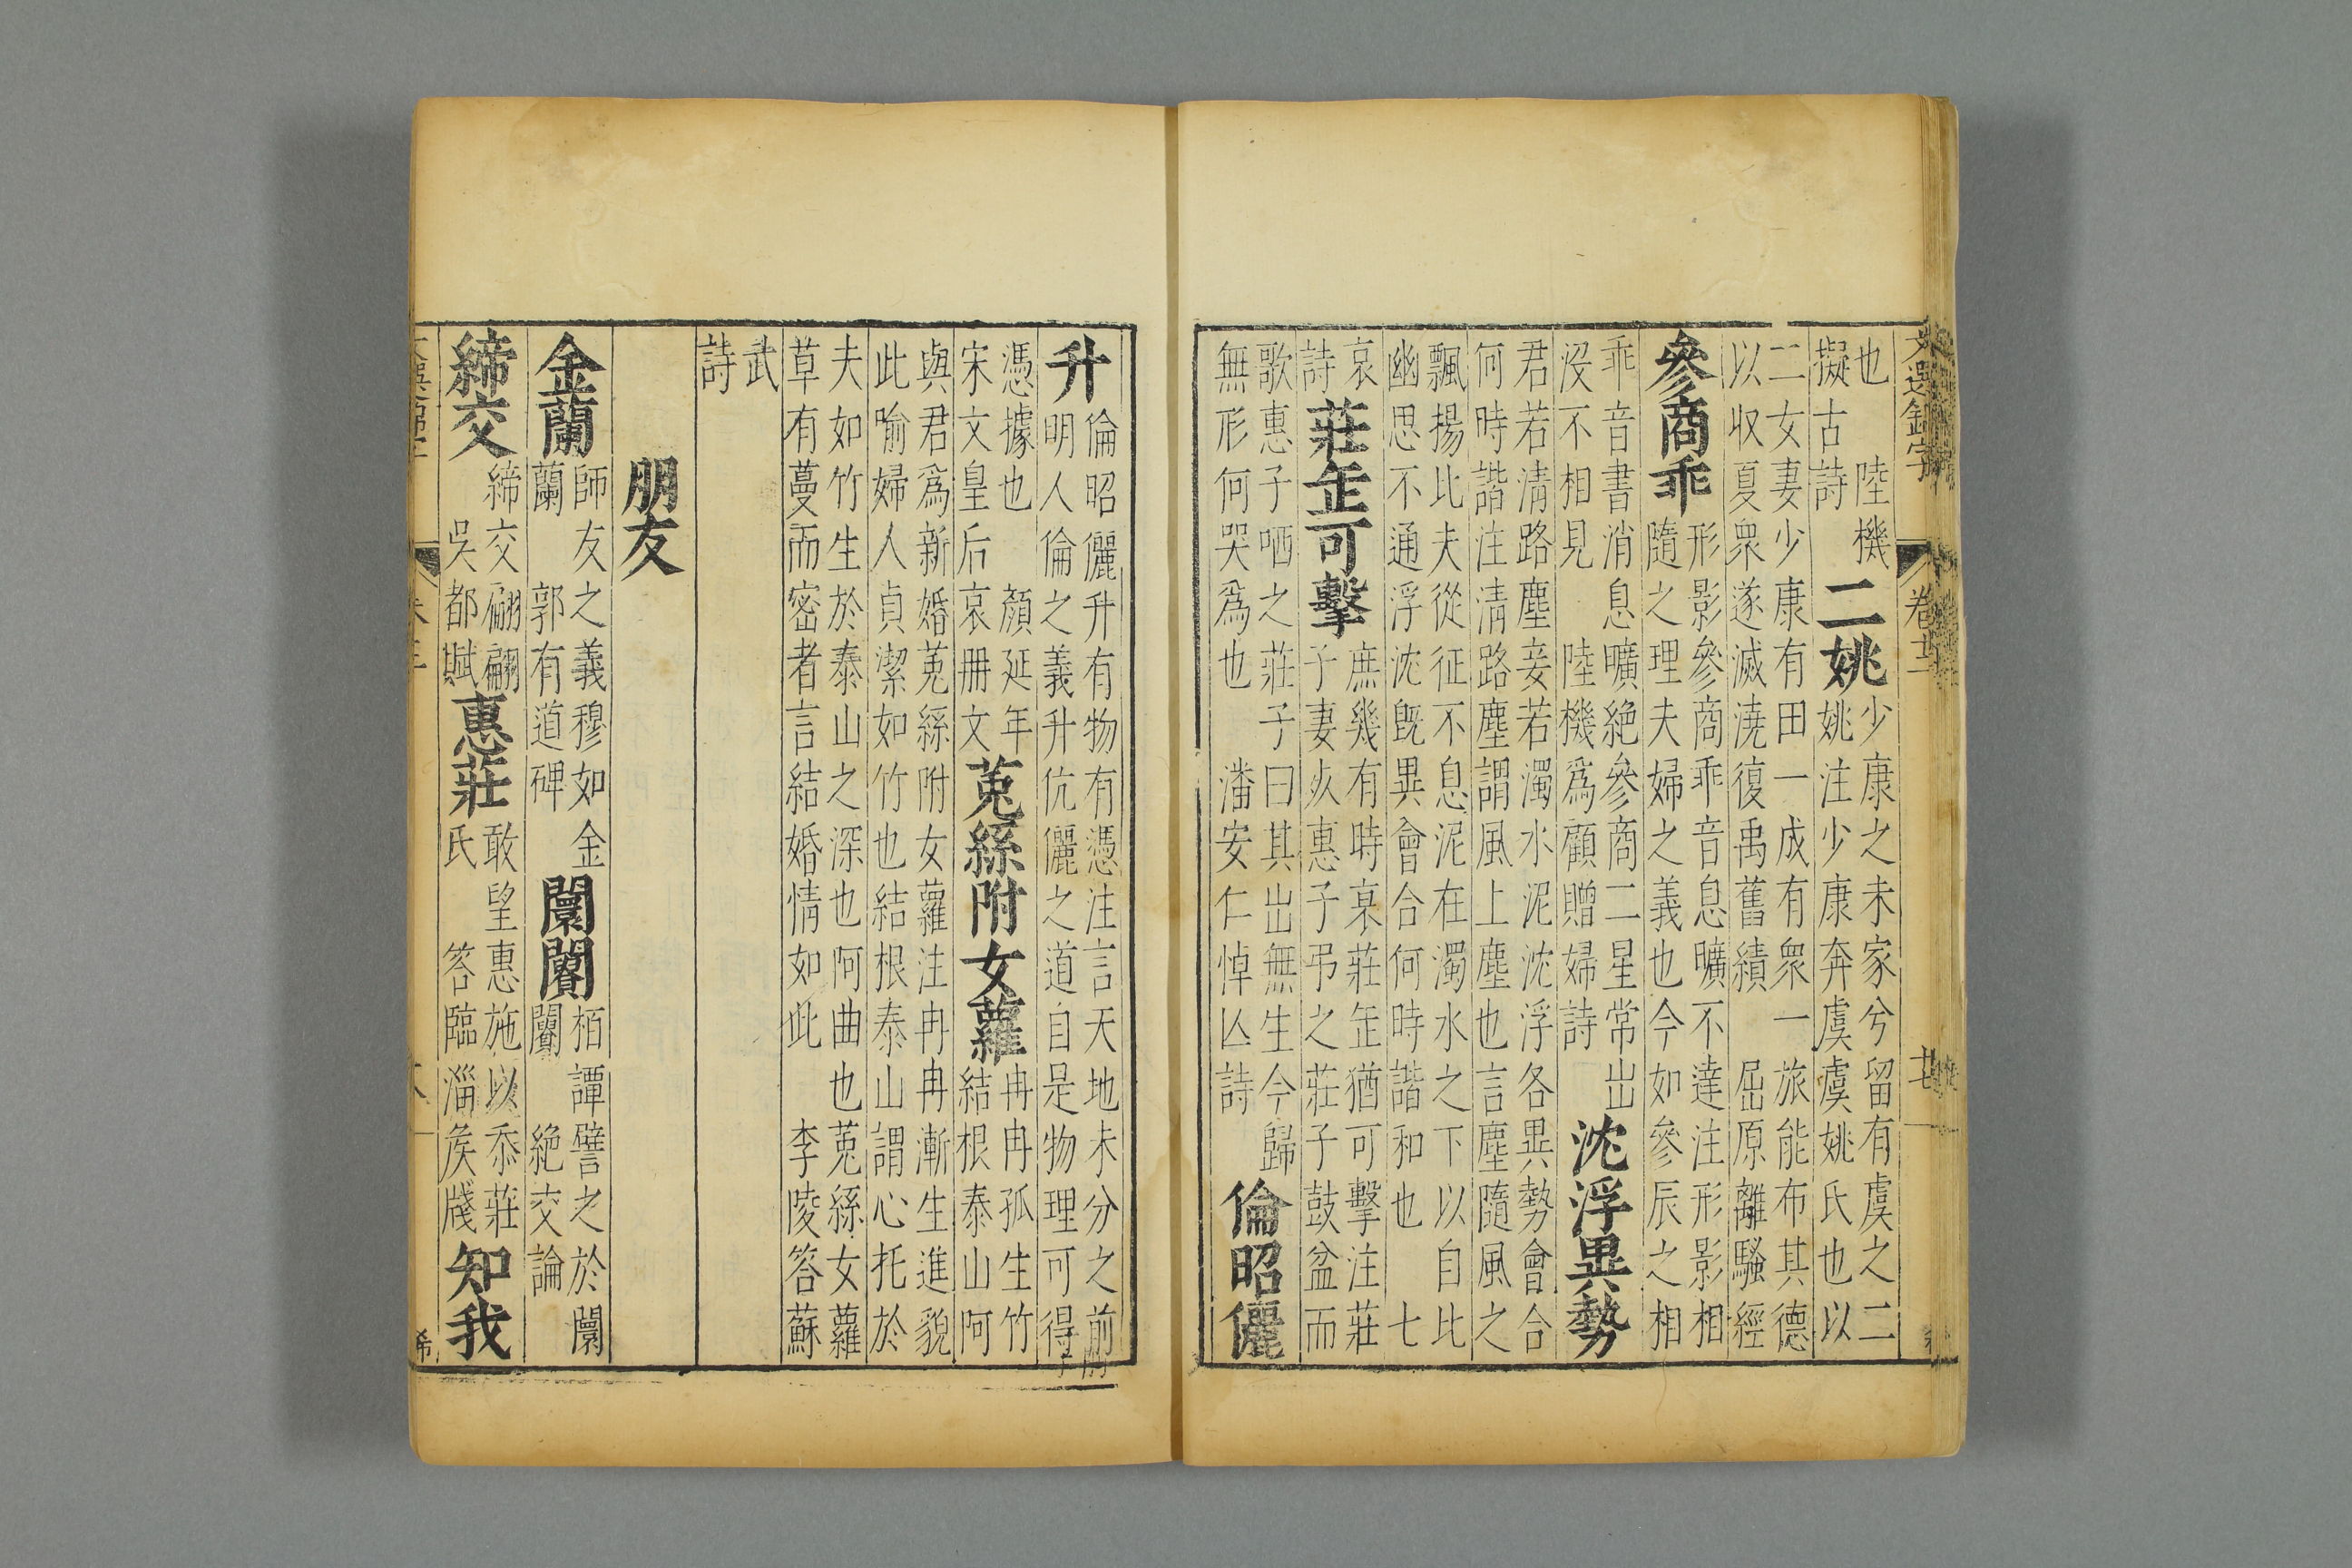 文選錦字
也　陸機
擬古詩
二姚
少康之未家兮留有虞之二
姚注少康奔虞虞姚氏也以
二女妻少康有田一成有衆一旅能布其德
以收夏衆遂滅澆復禹舊績　屈原離騷經
參商乖
形影參商乖音息曠不達注形影相
隨之理夫婦之義也今如參辰之相
乖音書消息曠絶參商二星常出
没不相見　陸機爲顧贈婦詩
沈浮異勢
君若清路塵妾若濁水泥沈浮各異勢會合
何時諧注清路塵謂風上塵也言塵隨風之
飄揚比夫從征不息泥在濁水之下以自比
幽思不通浮沈旣異會合何時諧和也　七
哀
詩
莊缶可擊
庶幾有時衰莊缶猶可擊注莊
子妻死惠子弔之莊子鼓盆而
歌惠子哂之莊子曰其出無生今歸
無形何哭爲也　潘安仁悼亡詩
倫昭儷
升
倫昭儷升有物有憑注言天地未分之前
明人倫之義升伉儷之道自是物理可得
憑據也　顏延年
宋文皇后哀册文
菟絲附女蘿
冉冉孤生竹
結根泰山阿
與君爲新婚菟絲附女蘿注冉冉漸生進貌
此喻婦人貞潔如竹也結根泰山謂心托於
夫如竹生於泰山之深也阿曲也菟絲女蘿
草有蔓而密者言結婚情如此　李陵答蘇
武
詩
朋友
金蘭
師友之義穆如金
蘭　郭有道碑
闤闠
栢譚譬之於闤
闠　絶交論
締交
締交翩翩
吳都賦
惠莊
敢望惠施以忝莊
氏　答臨淄矦牋
知我